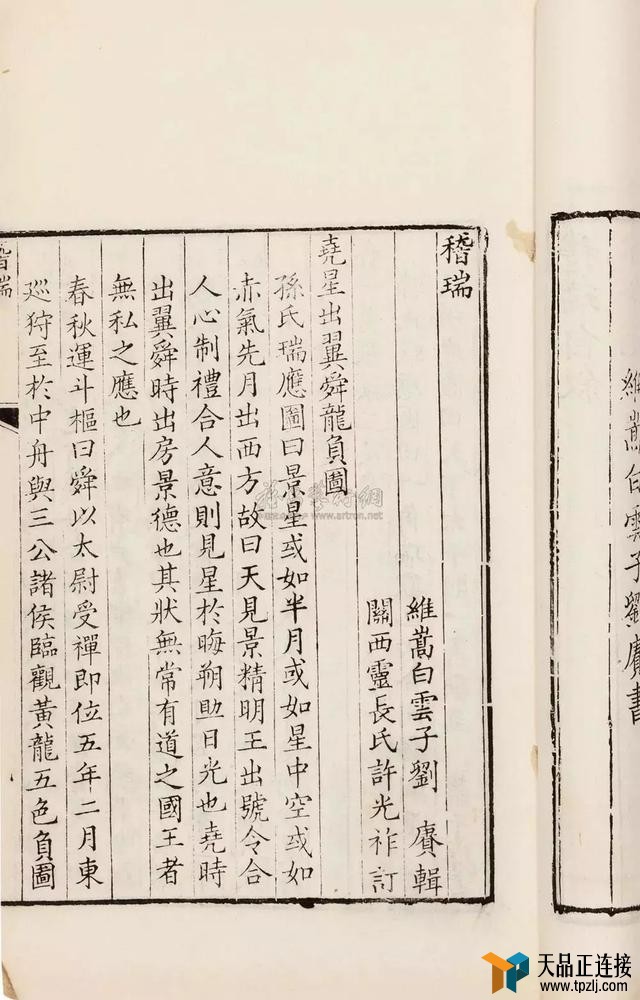 維嵩白雲子劉賡書
稽瑞
維嵩白雲子劉 賡輯
關西靈長氏許光祚訂
堯星出翼舜龍負圖
孫氏瑞應圖曰景星或如半月或如星中空或如
赤氣先月出西方故曰天見景精明王出號令合
人心制禮合人意則見星於晦朔助日光也堯時
出翼舜時出房景德也其狀無常有道之國王者
無私之應也
春秋運斗樞曰舜以太尉受禪即位五年二月東
巡狩至於中舟與三公諸侯臨觀黃龍五色負圖
稽瑞
www.artron.net
天品正连接
www.tpzlj.com